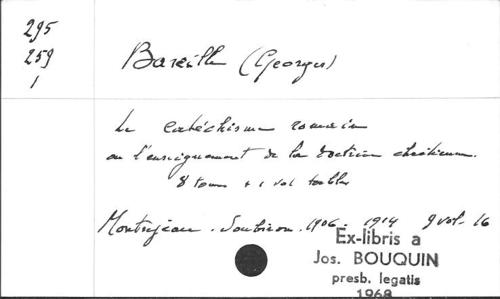 295
259
1
Bareille (Georges)
Le catéchisme romain
ou l'enseignement de la doctrine chrétienne.
8 tomes + 1 vol tables
Montrejeau. Soubiron. 1906-1914 9 vol. 16
Ex-libris a
Jos. BOUQUIN
presb. legatis
1968